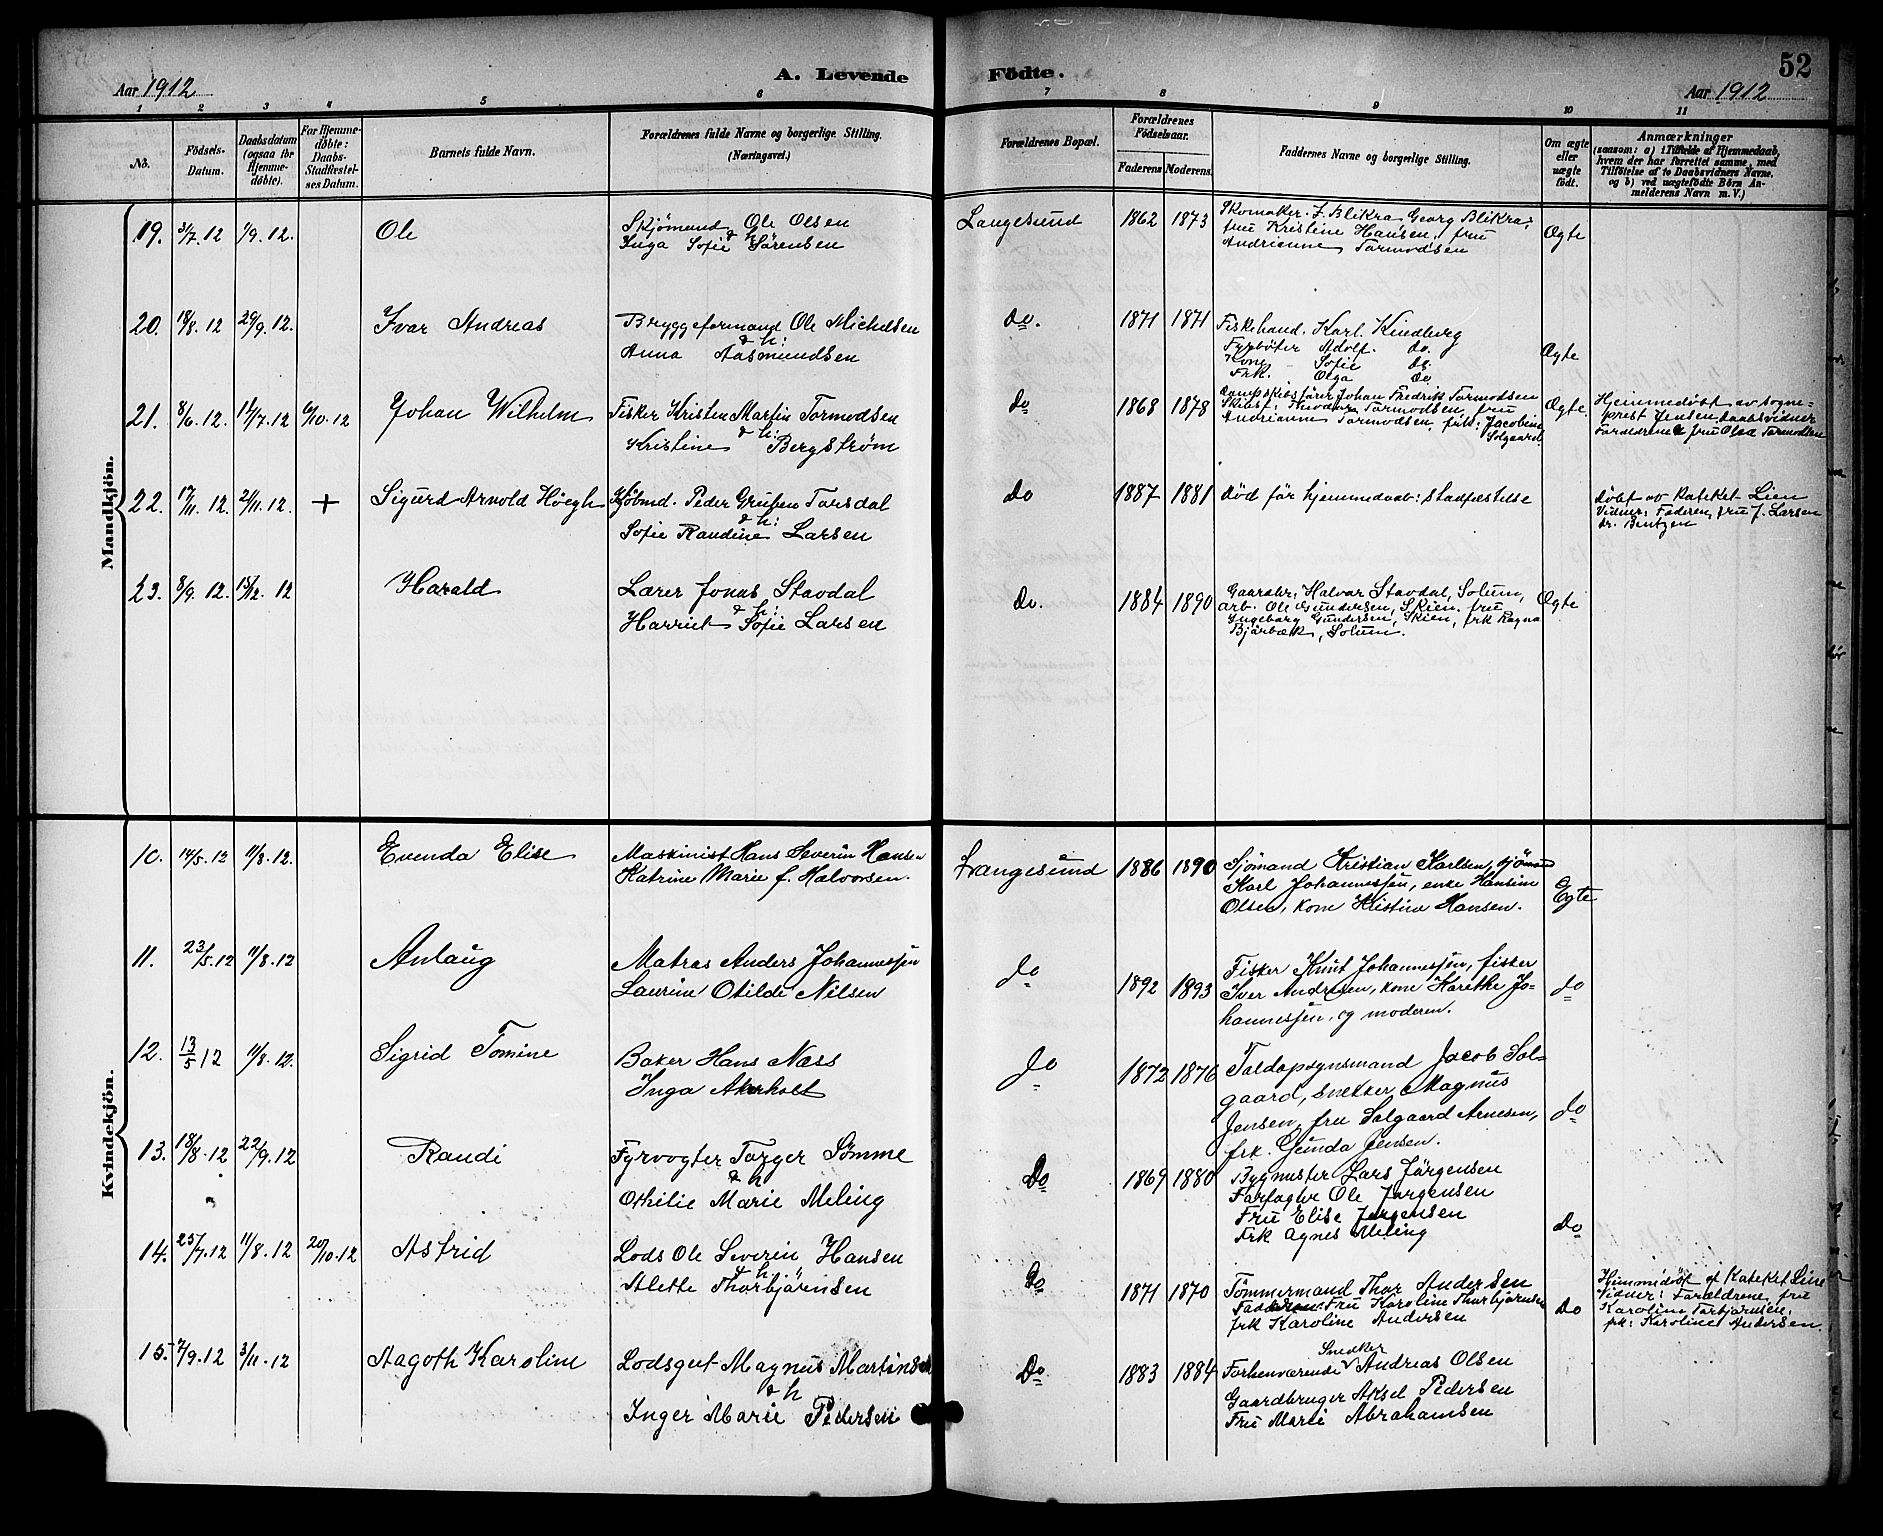 52
Aar 1912
A. Levende
Födte.
Aar 1912
1 2 3 4 5 6 7 8 9 10 11
No.
Födsels-
Datum.
Daabsdatum
(ogsaa for
Hjemme-
döbte).
For Hjemme-
döbte:
Daabs-
Stadfæstel-
ses Datum.
Barnets fulde Navn.
Forældrenes fulde Navne og borgerlige Stilling.
(Næringsvei.)
Forældrenes Bopæl.
Forældrenes
Födselsaar.
Faderens Moderens.
Faddernes Navne og borgerlige Stilling.
Om ægte
eller
uægte
födt.
Anmærkninger
(saasom: a) i Tilfælde af Hjemmedaab,
hvem der har forrettet samme, med
Tilföielse af to Daabsvidners Navne.
og b) ved uægtefödte Börn An-
melderens Navn m. V.)
Mandkjön.
19. 3/7. 12 1/9. 12. Ole
Skjömand Ole Olsen
& h
Inga Sofie Sörensen
Langesund 1862 1873
Skomaker. J. Blikra, Georg Blikra,
fru Kristine Hansen, fru
Andrianne Tormodsen
Ægte
20. 18/8. 12 29/9. 12. Ivar Andreas
Bryggeformand Ole Michelsen
& h:
Anna Aasmundsen
do. 1871 1871
Fiskehand. Karl Kindberg
Fyrböter Adolf. do.
Kone Sofie do.
Frk. Olga do
Ægte
21. 8/6. 12 14/7. 12 6/10. 12 Johan Wilhelm
Fisker Kristen Martin Tormodsen
& h:
Kristine Bergström
do 1868 1878
Dampskibsförer Johan Fredrik Tormodsen
Andrianne Tormodsen, frk: Jacobine
Solgaard
Ægte.
Hjemmedöbt av sogne-
prest Jensen, daabsvidner
Forældrene & fru Olea Tormodsen
22. 17/11. 12. 21/11. 12. + Sigurd Arnold Höegh
Kjöbmd. Peder Gruben Tarsdal
& h:
Sofie Randine Larsen
do 1887 1881 Död för hjemmedaab: stadfæstelse
Döbt av Kateket Lien
Vidner: Faderen, fru J. Larsen
dr. Bentzen
23. 8/9. 12. 15/12. 12 Harald
Lærer Jonas Stavdal
& h:
Harriet Sofie Larsen
do. 1884 1890
Gaarbr: Halvor Stavdal, Solum,
arb. Ole Gundersen, Skien, fru
Ingeborg Gundersen, Skien, frk Ragna
Bjärbæk, Solum.
Ægte
Kvindekjön.
10. 14/5. 12 11/8. 12. Evenda Elise
Maskinist Hans Severin Hansen
Katrine Marie f. Halvorsen.
Langesund 1886 1890
Sjömand Kristian Karlsen, sjömand
Karl Johannesjen, enke Hansine
Olsen, kone Kristine Hansen.
Egte
11. 23/5. 12 11/8. 12 Anlaug
Matros Anders Johannesjen
Laurine Otilde Nilsen
do 1892 1893
Fisker Knut Johannesjen, fisker
Iver Andresen, kone Karethe Jo-
hannesjen, og moderen.
do
12. 13/5 12 11/8. 12. Sigrid Tomine
Baker Hans Næss
Inga Akerholt
do 1872 1876
Toldopsynsmand Jacob Sol-
gaard, snekker Magnus
Jensen, fru Solgaard Arnesen,
frk. Gunda Jensen.
do
13. 18/8. 12 22/9. 12 Randi
Fyrvogter Torger Sömme
& h
Othilie Marie Meling
Do 1869 1880
Bygmester Lars Jörgensen
Farfogter Ole Jörgensen
Fru Elise Jörgensen
Frk Agnes Meling
Do
14. 25/7. 12 11/8. 12 20/10. 12 Astrid
Lods Ole Severin Hansen
& h
Alette Thorbjörnsen
Do 1871 1870
Tömmermand Thor Andersen
Fadderen: Fru Karoline Thorbjörnsen
frk Karoline Andersen
Do
Hjemmedöbt af Kateket Line
Vidner: Forældrene, fru
Karoline Torbjörnsen.
frk: Karoline Andersen.
15. 7/9. 12 3/11. 12 Aagoth Karoline
Lodsgut Magnus Martinsen
& h
Inger Marie Pedersen
Do 1883 1884
Snedker
Forhenværende Andreas Olsen
Gaardbruger Aksel Pedersen
Fru Marie Abrahamsen